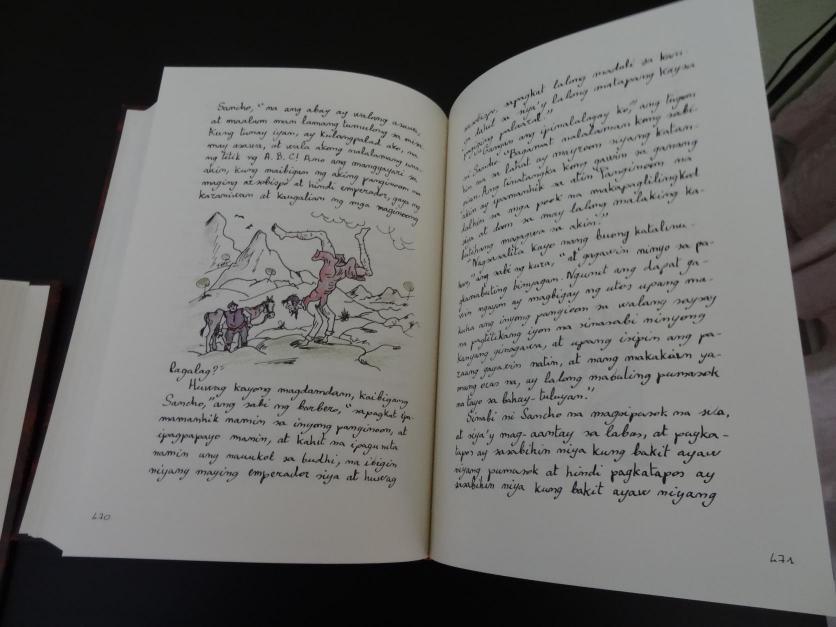 Sancho, "na ang abay ay walang asawa,
at maalam man lamang tumulong sa misa.
Kung tunay iyan, ay kulangpalad ako, na
may asawa, at wala akong nalalamang una-
ng titik ng A. B. C! Ano ang mangyayari sa
akin, kung maibigan ng aking panginoon na
maging arsobispo at hindi emperador, gaya ng
karaniwan at kaugalian ng mga maginoong
Pagalag?"
Huwag kayong magdamdam, kaibigang
Sancho," ang sabi ng barbero, "sapagkat ipa-
mamanhik namin sa inyong panginoon, at
ipagpapayo namin, at kahit na ipagunita
namin ang mauukol sa budhi, na ibigin
niyang maying emperador siya at huwag
470
sapagkat lalong madali sa kani-
siya'y lalong matapang kaysa
"Ganyan ang ipinalalagay ko," ang tugon
ni Sancho "Bagamat nalalaman kong sabi-
hin na sa lahat ay mayroon siyang katam-
pian. Ang tinatangka kong gawin sa ganang
akin ay ipamanhik sa ating Panginoon na
dalhin sa mga pook na makapaglilingkod
siya at doon sa may lalong malaking ka-
butihang magagawa sa akin."
"Nagsasalita kayo nang buong katalinu-
han," ang sabi ng kura, "at gagawin ninyo sa pa-
gkamabuting binyagan. Ngunit ang dapat ga-
win ngayon ay magbigay ng utos upang ma-
kuha ang inyong panginoon sa walang saysay
na pagtitikang iyon na sinasabi ninyong
kanyang ginagawa, at upang isipin ang pa-
raang gagawin natin, at nang makakain ya-
mang oras na, ay lalong mabuting pumasok
na tayo sa bahay-tuluyan."
Sinabi ni Sancho na magsipasok na sila,
at siya'y mag-aantay sa labas, at pagka-
tapos ay sasabihin niya kung bakit ayaw
niyang pumasok at hindi pagkatapos ay
sasabihin niya kung bakit ayaw niyang
471